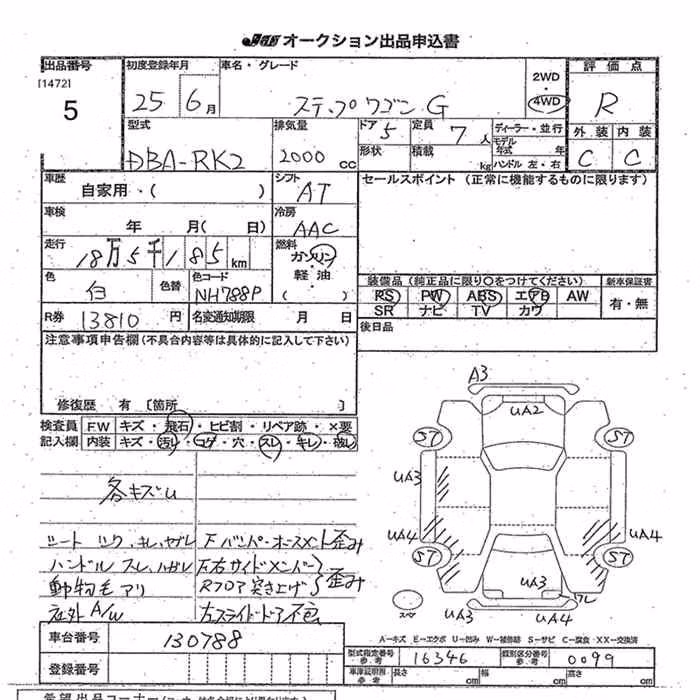 JAA オークション出品申込書
出品番号 [1472] 5
初度登録年月 25 6月
車名・グレード ステップワゴン G
2WD 4WD
評価点 R
外装 C 内装 C
型式 DBA-RK2
排気量 2000 cc
ドア 5 定員 7人
形状 積載 kg
ディーラー・並行
モデル年式 年
ハンドル 左・右
車歴 自家用・( )
シフト AT
セールスポイント (正常に機能するものに限ります)
車検 年 月( 日)
冷房 AAC
走行 18万5千185km
燃料 ガソリン 軽油 ( )
色 白 色替
色コード NH788P
装備品 (純正品に限り○をつけてください) 新車保証書
RS PW ABS エアB AW 有・無
SR ナビ TV カワ
R券 13810円 名変通知期限 月 日
後日品
注意事項申告欄(不具合内容等は具体的に記入して下さい)
修復歴 有 〔箇所 〕
検査員記入欄 F.W キズ・飛石・ヒビ割・リペア跡・×要
内装 キズ・汚れ・コゲ・穴・スレ・キレ・破レ
各キズU
シート シワ、キレ、ヤブレ
Fバンパーホースメント歪み
ハンドル スレ、ハガレ
F左右サイドメンバー
動物毛アリ
Rフロア突き上げ 歪み
社外 A/W
左スライドドア不良
車台番号 130788
登録番号
A3
UA2
ST ST
UA3
UA4 UA4
ST ST
UA3 ワレ
UA3 UA4
スペア
A-キズ E-エクボ U-凹み W-補修跡 S-サビ C-腐食 XX-交換済
型式指定番号 参考 16346
類別区分番号 参考 0099
車庫証明用 参考 長さ cm 幅 cm 高さ cm
希望出品コーナー